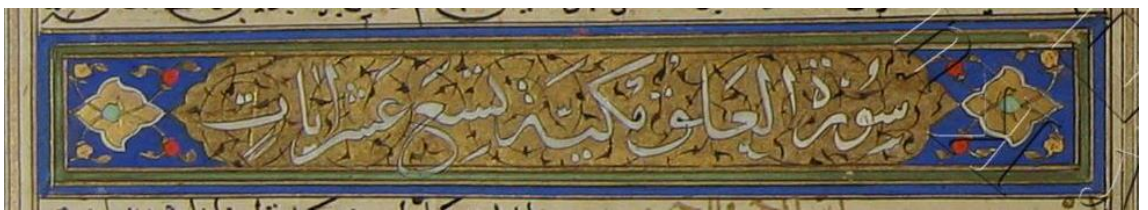 سُورَةُ العلق مَكيَّة تسع عَشر اٰيَاتٍ